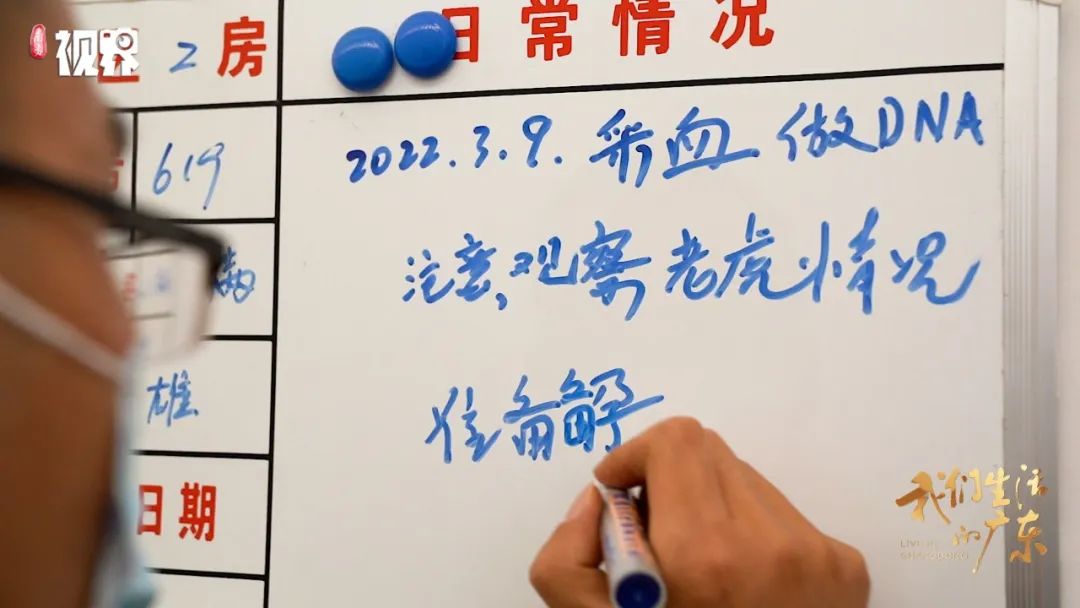 视界
2房
日常情况
619
2022.3.9. 采血 做DNA
注意,观察老虎情况
雄
准备
日期
我们生活
的广东